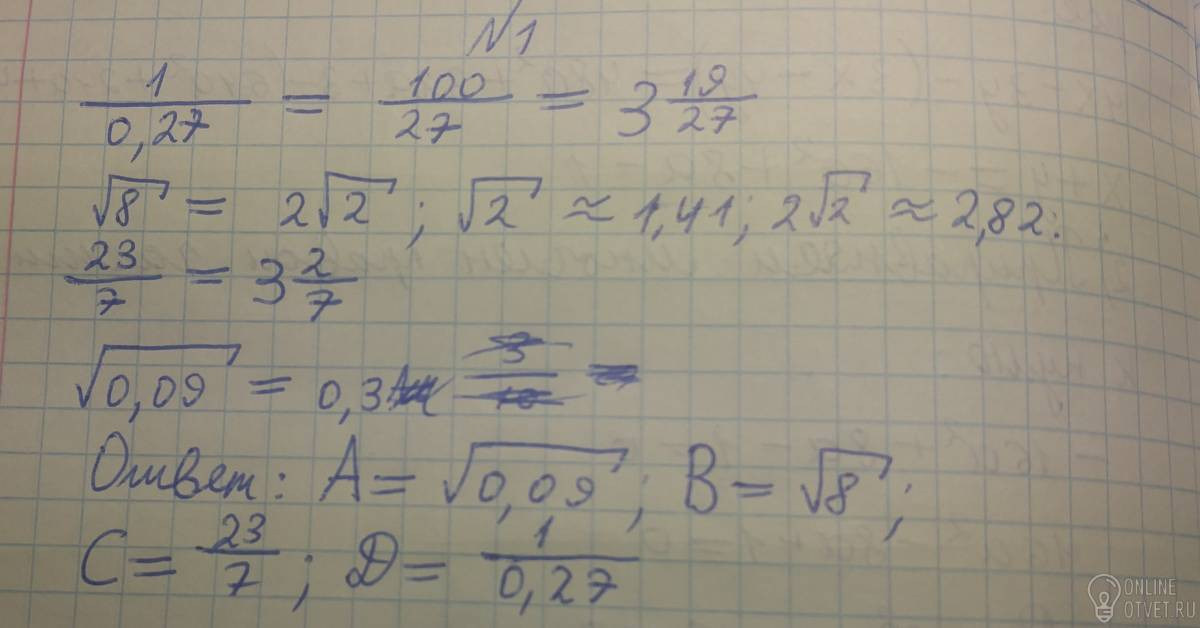 №1
1/0,27 = 100/27 = 3 19/27
√8 = 2√2; √2 ≈ 1,41; 2√2 ≈ 2,82.
23/7 = 3 2/7
√0,09 = 0,3
Ответ: A = √0,09; B = √8;
C = 23/7; D = 1/0,27
ONLINE
OTVET.RU